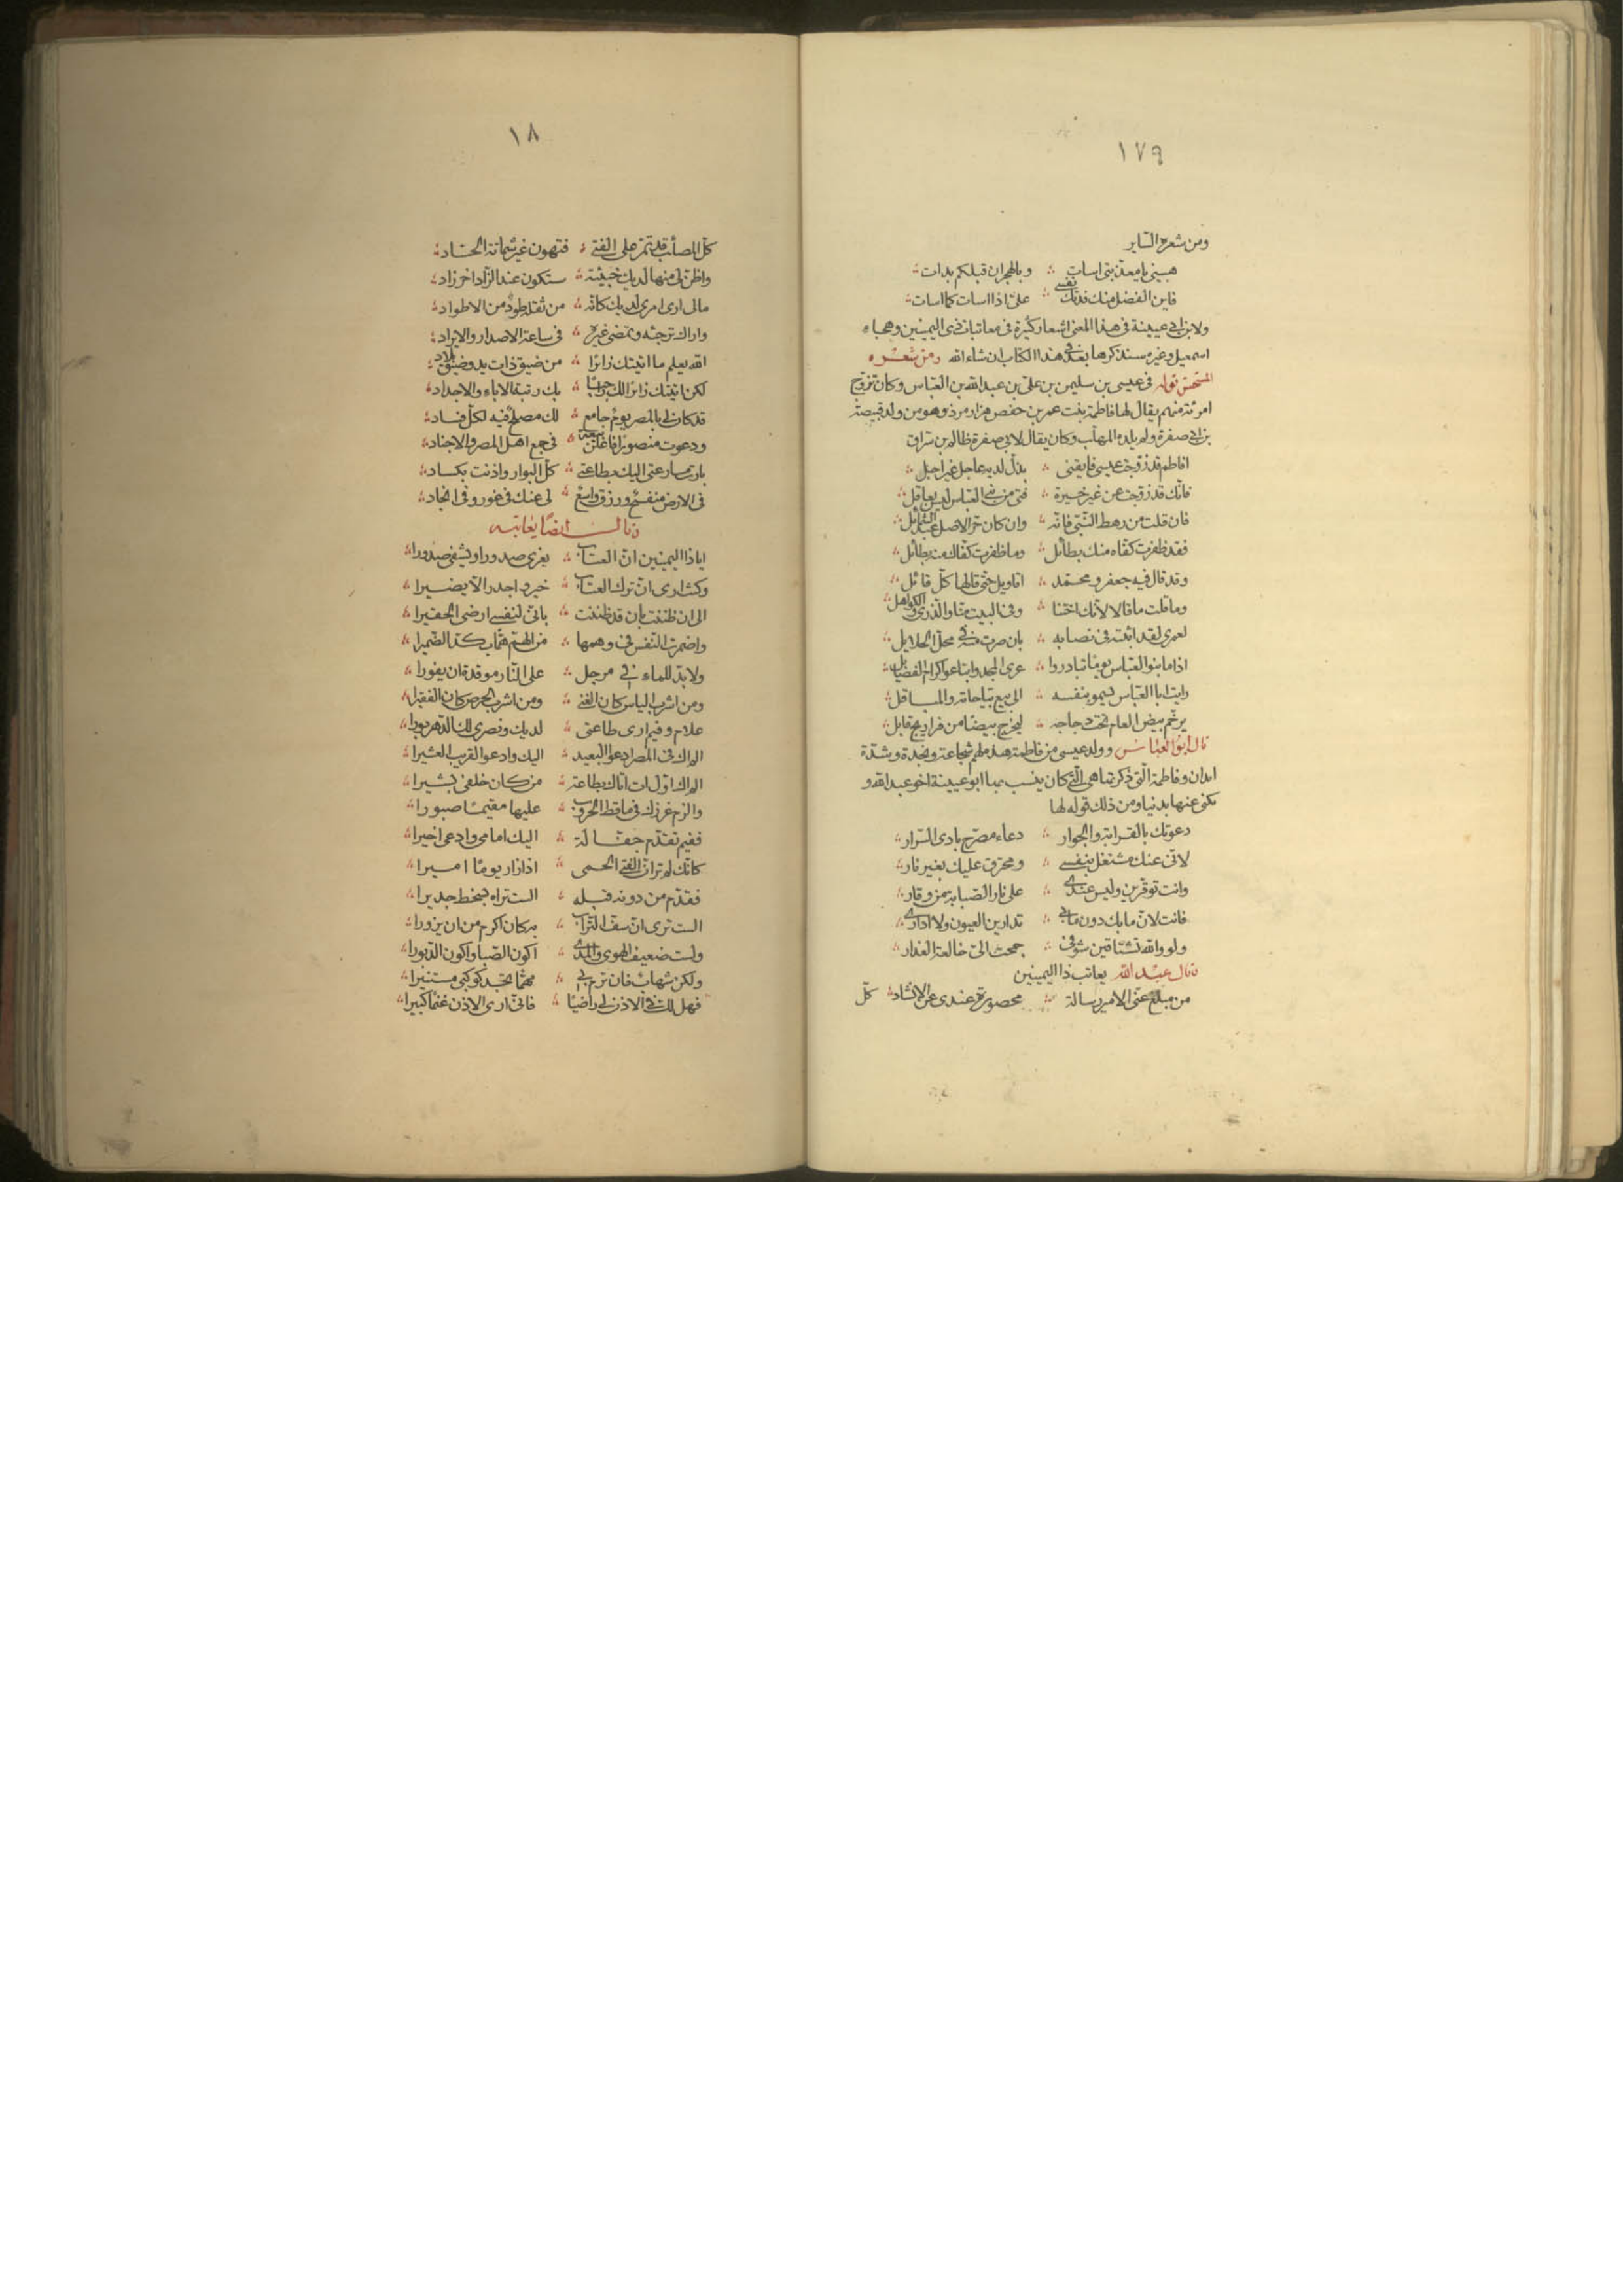 ١٧٩
ومن شعره الساير
هبيني يا معذبتي اسات ؛ وبالهجران قبلكم بدات ؛
فاين الفضل منك فدتك نفسي ؛ علىّ اذا اسات كما اسات ؛
ولابن ابي عيينة في هذا المعنى اشعار كثيرة في معاتبات ذي اليمينين وهجاء
اسمعيل وغيره سنذكرها بعد في هذا الكتاب ان شاء الله ومن شعره
المستحسن قوله في عيسى بن سليمن بن علي بن عبد الله بن العباس وكان تزوج
امرئة منهم يقال لها فاطمة بنت عمر بن حفص هزارمرد وهو من ولد قبيصة
بن ابي صفرة ولم يلده المهلب وكان يقال لابي صفرة ظالم بن سراق
افاطم قد زوجت عيسى فايقني ؛ بذل لديه عاجل غير اجل ؛
فانّك قد زوجت عن غير خبرة ؛ فتى من بني العباس ليس بعاقل ؛
فان قلت من رهط النبي فانّه ؛ وان كان حر الاصل عبد الشمائل ؛
فقد ظفرت كفّاه منك بطائل ؛ وما ظفرت كفّاك منه بطائل ؛
وقد قال فيه جعفر ومحمّد ؛ اقاويل حتى قالها كلّ قائل ؛
وما قلت ما قالا لانّك اختنا ؛ وفي البيت منّا والذرى والكواهل ؛
لعمري لقد اثبته في نصابه ؛ بان صرت منه في محل الحلايل ؛
اذا ما بنو العباس يومًا تبادروا ؛ عرى المجد وابتاعوا كرام الفضايل ؛
رايت ابا العباس يسمو بنفسه ؛ الى بيع بيّاحاته والمباقل ؛
يرخّم بيض العام تحت دجاجه ؛ ليخرج بيضًا من فراريج قابل ؛
قال ابو العباس وولد عيسى من فاطمة هذه لهم شجاعة ونجدة وشدّة
ابدان وفاطمة الّتي ذكرتها هي الّتي كان ينسب بها ابو عيينة اخو عبد الله و
يكنى عنها بدنيا ومن ذلك قوله لها
دعوتك بالقرابة والجوار ؛ دعاء مصرّح بادي السرار ؛
لانّي عنك مشتغل بنفسي ؛ ومحترق عليك بغير نار ؛
وانت توقّرين وليس عندي ؛ على نار الصبابة من وقار ؛
فانت لانّ ما بك دون ما بي ؛ تدارين العيون ولا اداري ؛
ولو والله تشتاقين شوقي ؛ جمحت الىّ خالعة العذار ؛
وقال عبد الله يعاتب ذا اليمينين
من مبلغ عنّي الامير رسالة ؛ محصورة عندي عن الانشاد ؛ كلّ
١٨
كلّ المصائب قد تمرّ على الفتى ؛ فتهون غير شماتة الحسّاد ؛
واظن لي منها لديك خبيئة ؛ ستكون عند الزّاد اخر زاد ؛
مالي ارى امري لديك كانّه ؛ من ثقله طود من الاطواد ؛
واراك ترجئه وتمضي غيره ؛ في ساعة الاصدار والايراد ؛
الله يعلم ما اتيتك زائرًا ؛ من ضيق ذات يد وضيق بلاد ؛
لكن اتيتك زائرا لك راجيًا ؛ بك رتبة الاباء والاجداد ؛
قد كان لي بالمصر يوم جامع ؛ لك مصلح فيه لكلّ فساد ؛
ودعوت منصورًا فاعلن بيعة ؛ في جمع اهل المصر والاجناد ؛
بارت مسارعتي اليك بطاعتي ؛ كلّ البوار واذنت بكساد ؛
في الارض منفسح ورزق واسع ؛ لي عنك في غور وفي انجاد ؛
وقال ايضًا يعاتبه
ايا ذا اليمينين انّ العتاب ؛ يغري صدورا ويشفي صدورا ؛
وكنت ارى انّ ترك العتاب ؛ خير واجدر الّا يضيرا ؛
الى ان ظننت بان قد ظننت ؛ بانّي لنفسي ارضى الحقيرا ؛
واضمرت النفس في وهمها ؛ من الهمّ همّا يكدّ الضميرا ؛
ولا بدّ للماء في مرجل ؛ على النّار موقدة ان يفورا ؛
ومن اشرب الياس كان الغني ؛ ومن اشرب الحرص كان الفقيرا ؛
علام وفيم ارى طاعتي ؛ لديك ونصري لك الدّهر بورا ؛
الم اك في المصر ادعو البعيد ؛ اليك وادعو القريب العشيرا ؛
الم اك اوّل ات اتاك بطاعة ؛ من كان خلفي بشيرا ؛
والزم غرزك في ماقط الحروب ؛ عليها مقيمًا صبورا ؛
ففيم تقدّم جفالة ؛ اليك امامي وادعى اخيرا ؛
كانّك لم تر انّ الفتى الحمي ؛ اذا زار يومًا اميرا ؛
فقدّم من دونه قبله ؛ الست تراه بسخط جديرا ؛
الست ترى انّ سفّ التّراب ؛ به كان اكرم من ان يزورا ؛
ولست ضعيف الهوى والمدى ؛ اكون الصبا واكون الدّبورا ؛
ولكن شهاب فان ترم بي ؛ مهمّا تجد كوكبي مستنيرا ؛
فهل لك في الاذن لي راضيًا ؛ فانّي ارى الاذن غنمًا كبيرا ؛